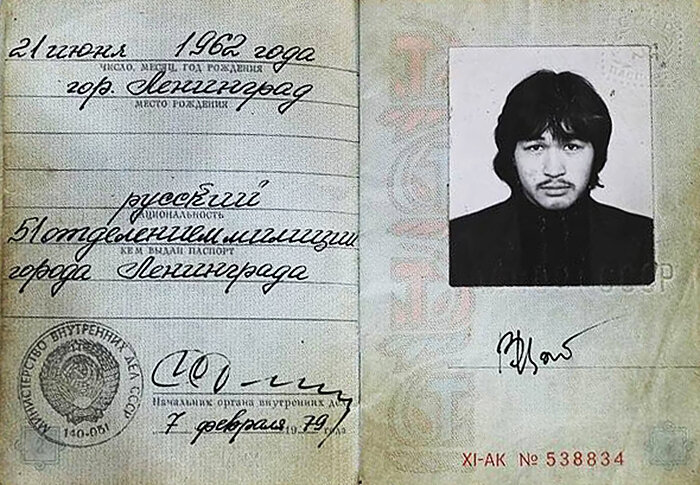 21 июня 1962 года
ЧИСЛО, МЕСЯЦ, ГОД РОЖДЕНИЯ
гор. Ленинград
МЕСТО РОЖДЕНИЯ
русский
НАЦИОНАЛЬНОСТЬ
51 отделением милиции
КЕМ ВЫДАН ПАСПОРТ
города Ленинграда
МИНИСТЕРСТВО ВНУТРЕННИХ ДЕЛ СССР
140-051
Начальник органа внутренних дел
7 февраля 1979 года
ВЦой
СССР
XI-АК № 538834